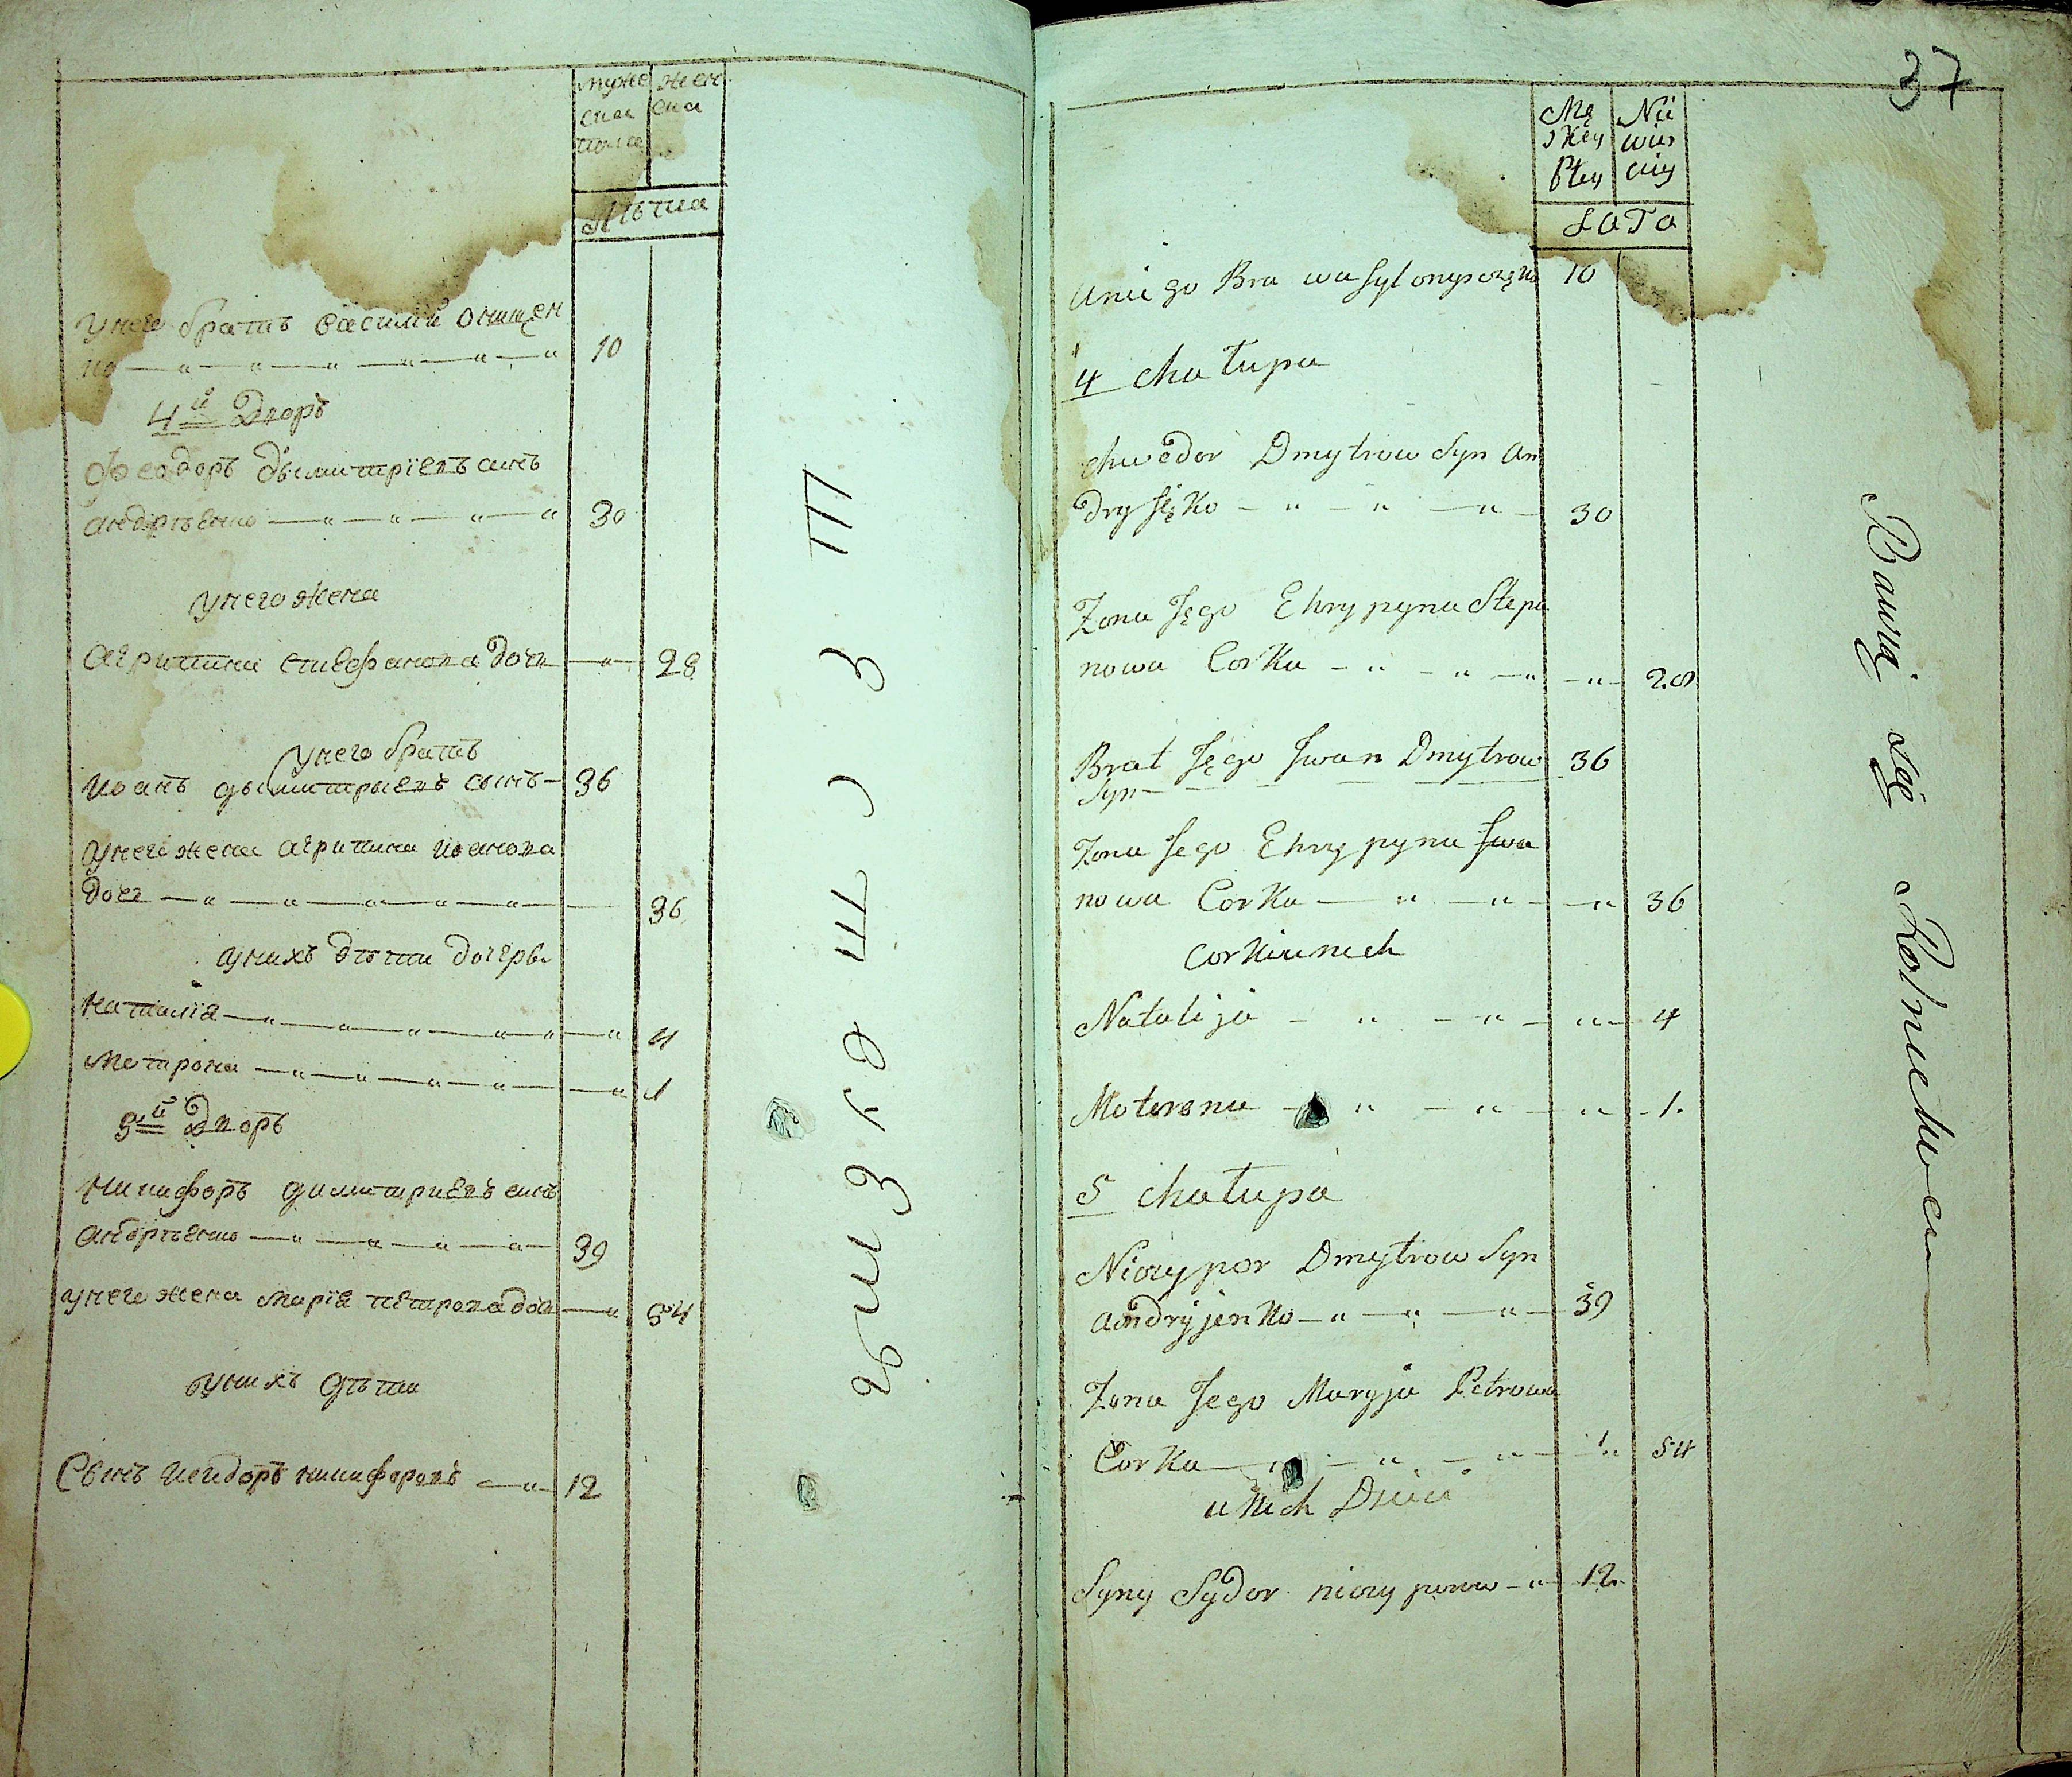 муже женс
ска ска
пола
Лѣта
у него братъ василий онищен
ко 10
4й Дворъ
Феодоръ дымитрїевъ синъ
андрѣенко 30
у него жена
агрипина стефанова дочь 28
у него братъ
иоанъ дымитрыевъ сынъ 36
у него жена агрипина иоанова
дочь 36
у нихъ дѣти дочеры
наталїя 4
мотрона 1
5й Дворъ
никифоръ димитриевъ синъ
андрѣенко 39
у него жена марїя петрова доч 54
у нихъ дѣти
Сынъ исидоръ никифоровъ 12
37
Mę Nie
skey wies
Płey ciey
LaTa
u nie go Bra wasyl onysczęko 10
4 chałupa
chwedor Dmytrow Syn An
dryjęko 30
Zona Jego Ehrypyna Stepa
nowa Corka 28
Brat Jęgo Jwan Dmytrow 36
Syn
Zona Jego Ehrypyna Jwa
nowa Corka 36
Corki u nich
Natalija 4
Motrena 1.
5 chałupa
Niczypor Dmytrow Syn
andryjenko 39
Zona Jego Maryja Petrowa
Corka 54
u nich Dzieci
Syny Sydor niczyporow 12
Bawią się Rolnictwem